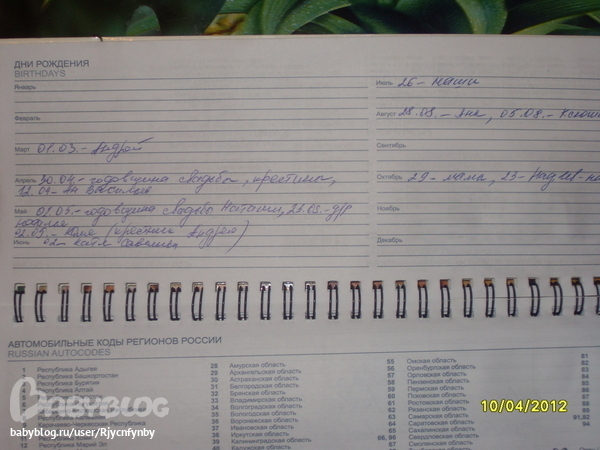 ДНИ РОЖДЕНИЯ
BIRTHDAYS
Январь
Февраль
Март 01.03.- Андрей
Апрель 30.04.- годовщина свадьбы, крестины,
12.04-
Май 01.05.-годовщина свадьбы Наташи, 21.05.-д/р
02.05.- Коля (крестник Андрея)
Июнь 02- Катя
Июль 26- наши
Август 28.08.- Яна, 05.08.- Ксюши
Сентябрь
Октябрь 29- мама, 23-
Ноябрь
Декабрь
АВТОМОБИЛЬНЫЕ КОДЫ РЕГИОНОВ РОССИИ
RUSSIAN AUTOCODES
1 Республика Адыгея
2 Республика Башкортостан
3 Республика Бурятия
4 Республика Алтай
Карачаево-Черкесская Республика
12 Республика Марий Эл
28 Амурская область
29 Архангельская область
30 Астраханская область
31 Белгородская область
32 Брянская область
33 Владимирская область
34 Волгоградская область
35 Вологодская область
36 Воронежская область
37 Ивановская область
38 Иркутская область
39 Калининградская область
40 Калужская область
55 Омская область
56 Оренбургская область
57 Орловская область
58 Пензенская область
59 Пермская область
60 Псковская область
61 Ростовская область
62 Рязанская область
63 Самарская область
64 Саратовская область
65 Сахалинская область
66, 96 Свердловская область
81
82
83
86
87
89
91,92
94
BABYBLOG
babyblog.ru/user/Rjycnfynby
10/04/2012